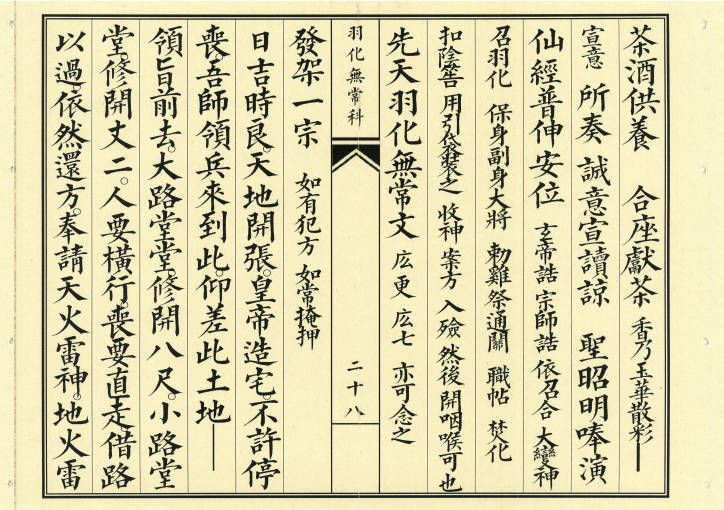 茶酒供養　合座獻茶　香乃玉華散彩——
宣意　所奏　誠意宣讀諒　聖昭明啭演
仙經普伸安位　玄帝誥　宗師誥　依召合　大變神
召羽化　保身副身大將　勅雞祭通關　職帖　焚化
扣陰善　用引代發裝之　收神　案方　入殮　然後　開咽喉可也
先天羽化無常文　広更　広七　亦可念之
羽化無常科
二十八
發架一宗　如有犯方　如常掩押
日吉時良。天地開張。皇帝造宅。不許停
喪。吾師領兵來到此。仰差此土地——
領旨前去。大路堂堂。修開八尺。小路堂
堂。修開丈二。人要橫行。喪要直走。借路
以過。依然還方。奉請天火雷神。地火雷